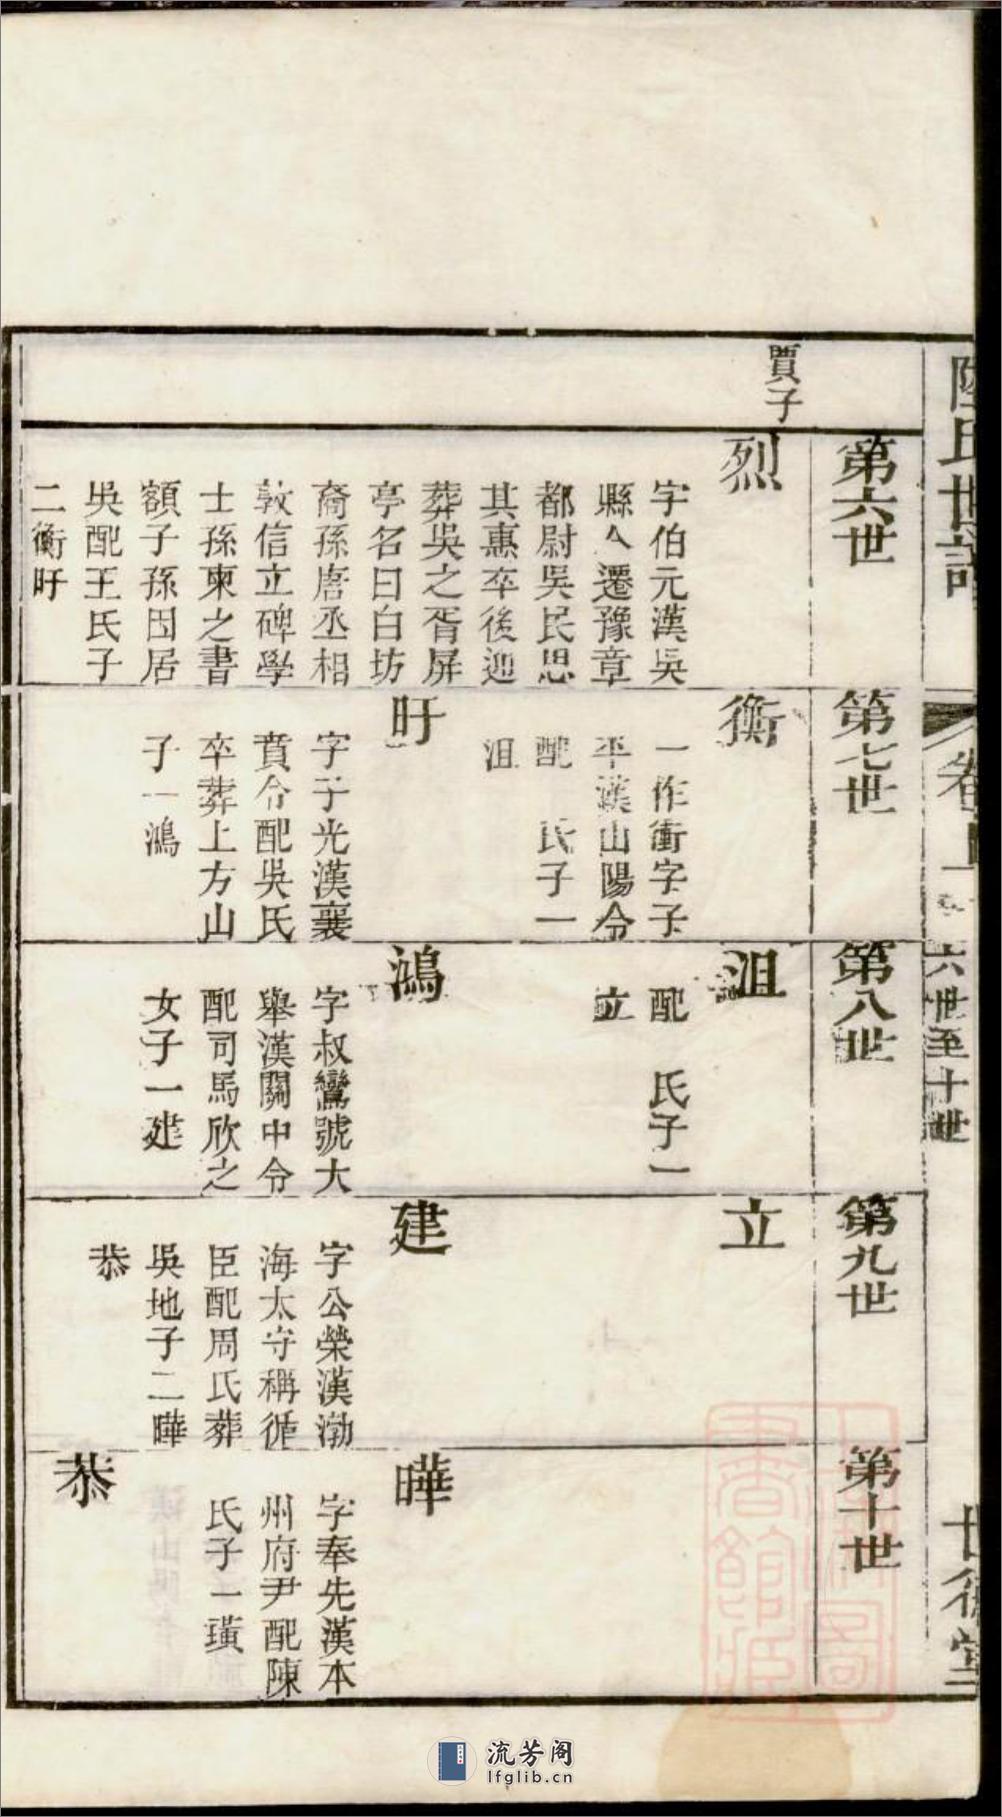 陸氏世譜
卷上
六世至十世
世德堂
賈子
第六世
烈
字伯元漢吳
縣人遷豫章
都尉吳民思
其惠卒後迎
葬吳之胥屏
亭名曰白坊
裔孫唐丞相
敦信立碑學
士孫柬之書
額子孫因居
吳配王氏子
二衡旴
第七世
衡
一作衝字子
平漢山陽令
配　氏子一
沮
旴
字子光漢襄
賁令配吳氏
卒葬上方山
子一鴻
第八世
沮
配　氏子一
立
鴻
字叔鸞號大
舉漢關中令
配司馬欣之
女子一建
第九世
立
建
字公榮漢渤
海太守稱循
臣配周氏葬
吳地子二曄
恭
第十世
曄
字奉先漢本
州府尹配陳
氏子一璜
恭
流芳阁
lfglib.cn